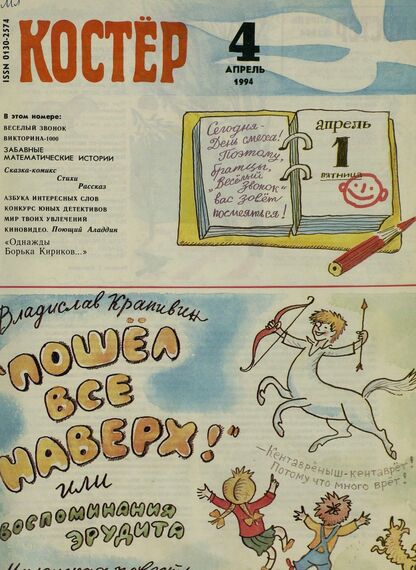 ISSN 0130-2574
КОСТЁР
4
АПРЕЛЬ
1994
В этом номере:
ВЕСЕЛЫЙ ЗВОНОК
ВИКТОРИНА-1000
ЗАБАВНЫЕ
МАТЕМАТИЧЕСКИЕ ИСТОРИИ
Сказка-комикс
Стихи
Рассказ
АЗБУКА ИНТЕРЕСНЫХ СЛОВ
КОНКУРС ЮНЫХ ДЕТЕКТИВОВ
МИР ТВОИХ УВЛЕЧЕНИЙ
КИНОВИДЕО. Поющий Аладдин
«Однажды
Борька Кириков...»
Сегодня -
День смеха!
Поэтому,
братцы,
„Весёлый
звонок"
вас зовёт
посмеяться!
апрель
1
пятница
Владислав Крапивин
"ПОШЁЛ
ВСЕ
НАВЕРХ!"
или
воспоминания
ЭРУДИТА
— Кентаврёныш-кентаврёт!
Потому что много врёт!